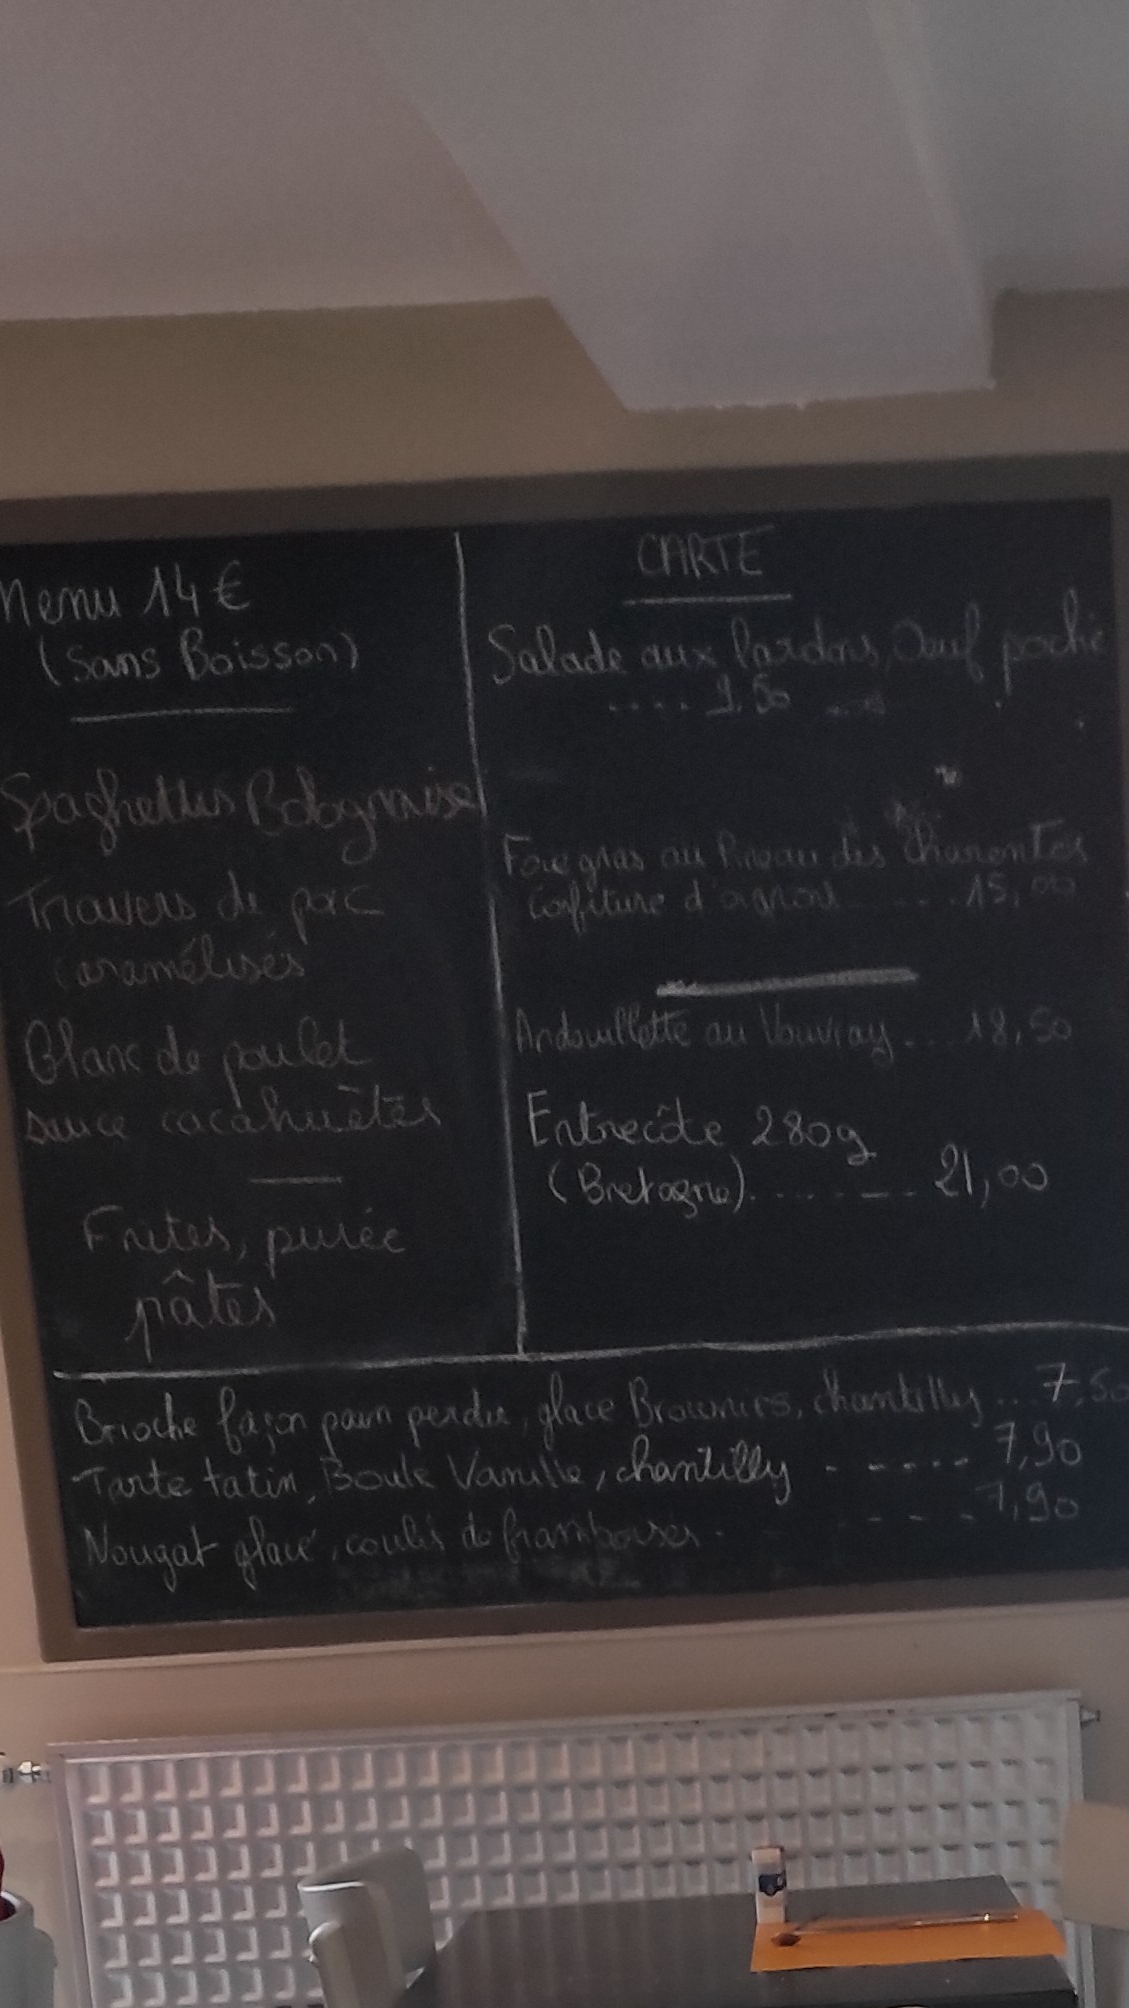 Menu 14€
(Sans Boisson)
Spaghettis Bolognaise
Travers de porc
caramélisés
Blanc de poulet
sauce cacahuètes
Frites, purée
pâtes
CARTE
Salade aux lardons, Oeuf poché
.... 9,50 ....
Foie gras au Pineau des Charentes
Confiture d'oignons ..... 15,00
Andouillette au Vouvray ... 18,50
Entrecôte 280g
(Bretagne) ........ 21,00
Brioche façon pain perdu, glace Brownies, chantilly ... 7,50
Tarte tatin, Boule Vanille, chantilly ...... 7,90
Nougat glacé, coulis de framboises ..... 7,90